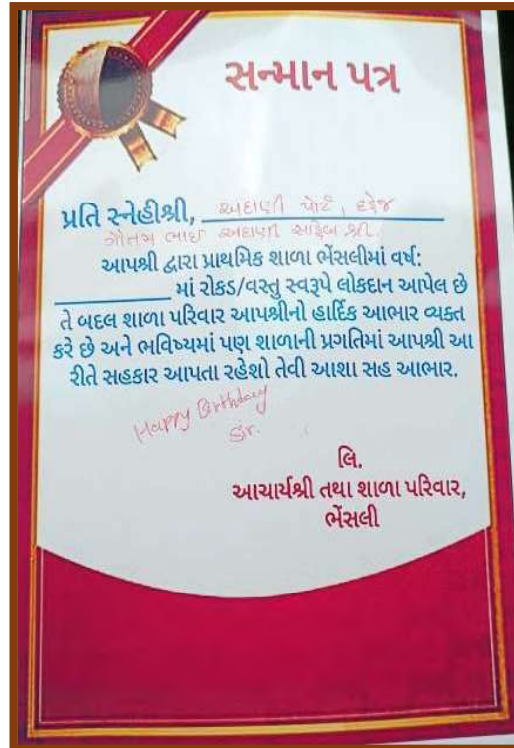 સન્માન પત્ર
પ્રતિ સ્નેહીશ્રી, અદાણી પોર્ટ, દહેજ
ગૌતમ ભાઇ અદાણી સાહેબ શ્રી.
આપશ્રી દ્વારા પ્રાથમિક શાળા ભેંસલીમાં વર્ષ:
માં રોકડ/વસ્તુ સ્વરૂપે લોકદાન આપેલ છે
તે બદલ શાળા પરિવાર આપશ્રીનો હાર્દિક આભાર વ્યક્ત
કરે છે અને ભવિષ્યમાં પણ શાળાની પ્રગતિમાં આપશ્રી આ
રીતે સહકાર આપતા રહેશો તેવી આશા સહ આભાર.
Happy Birthday
Sir.
લિ.
આચાર્યશ્રી તથા શાળા પરિવાર,
ભેંસલી